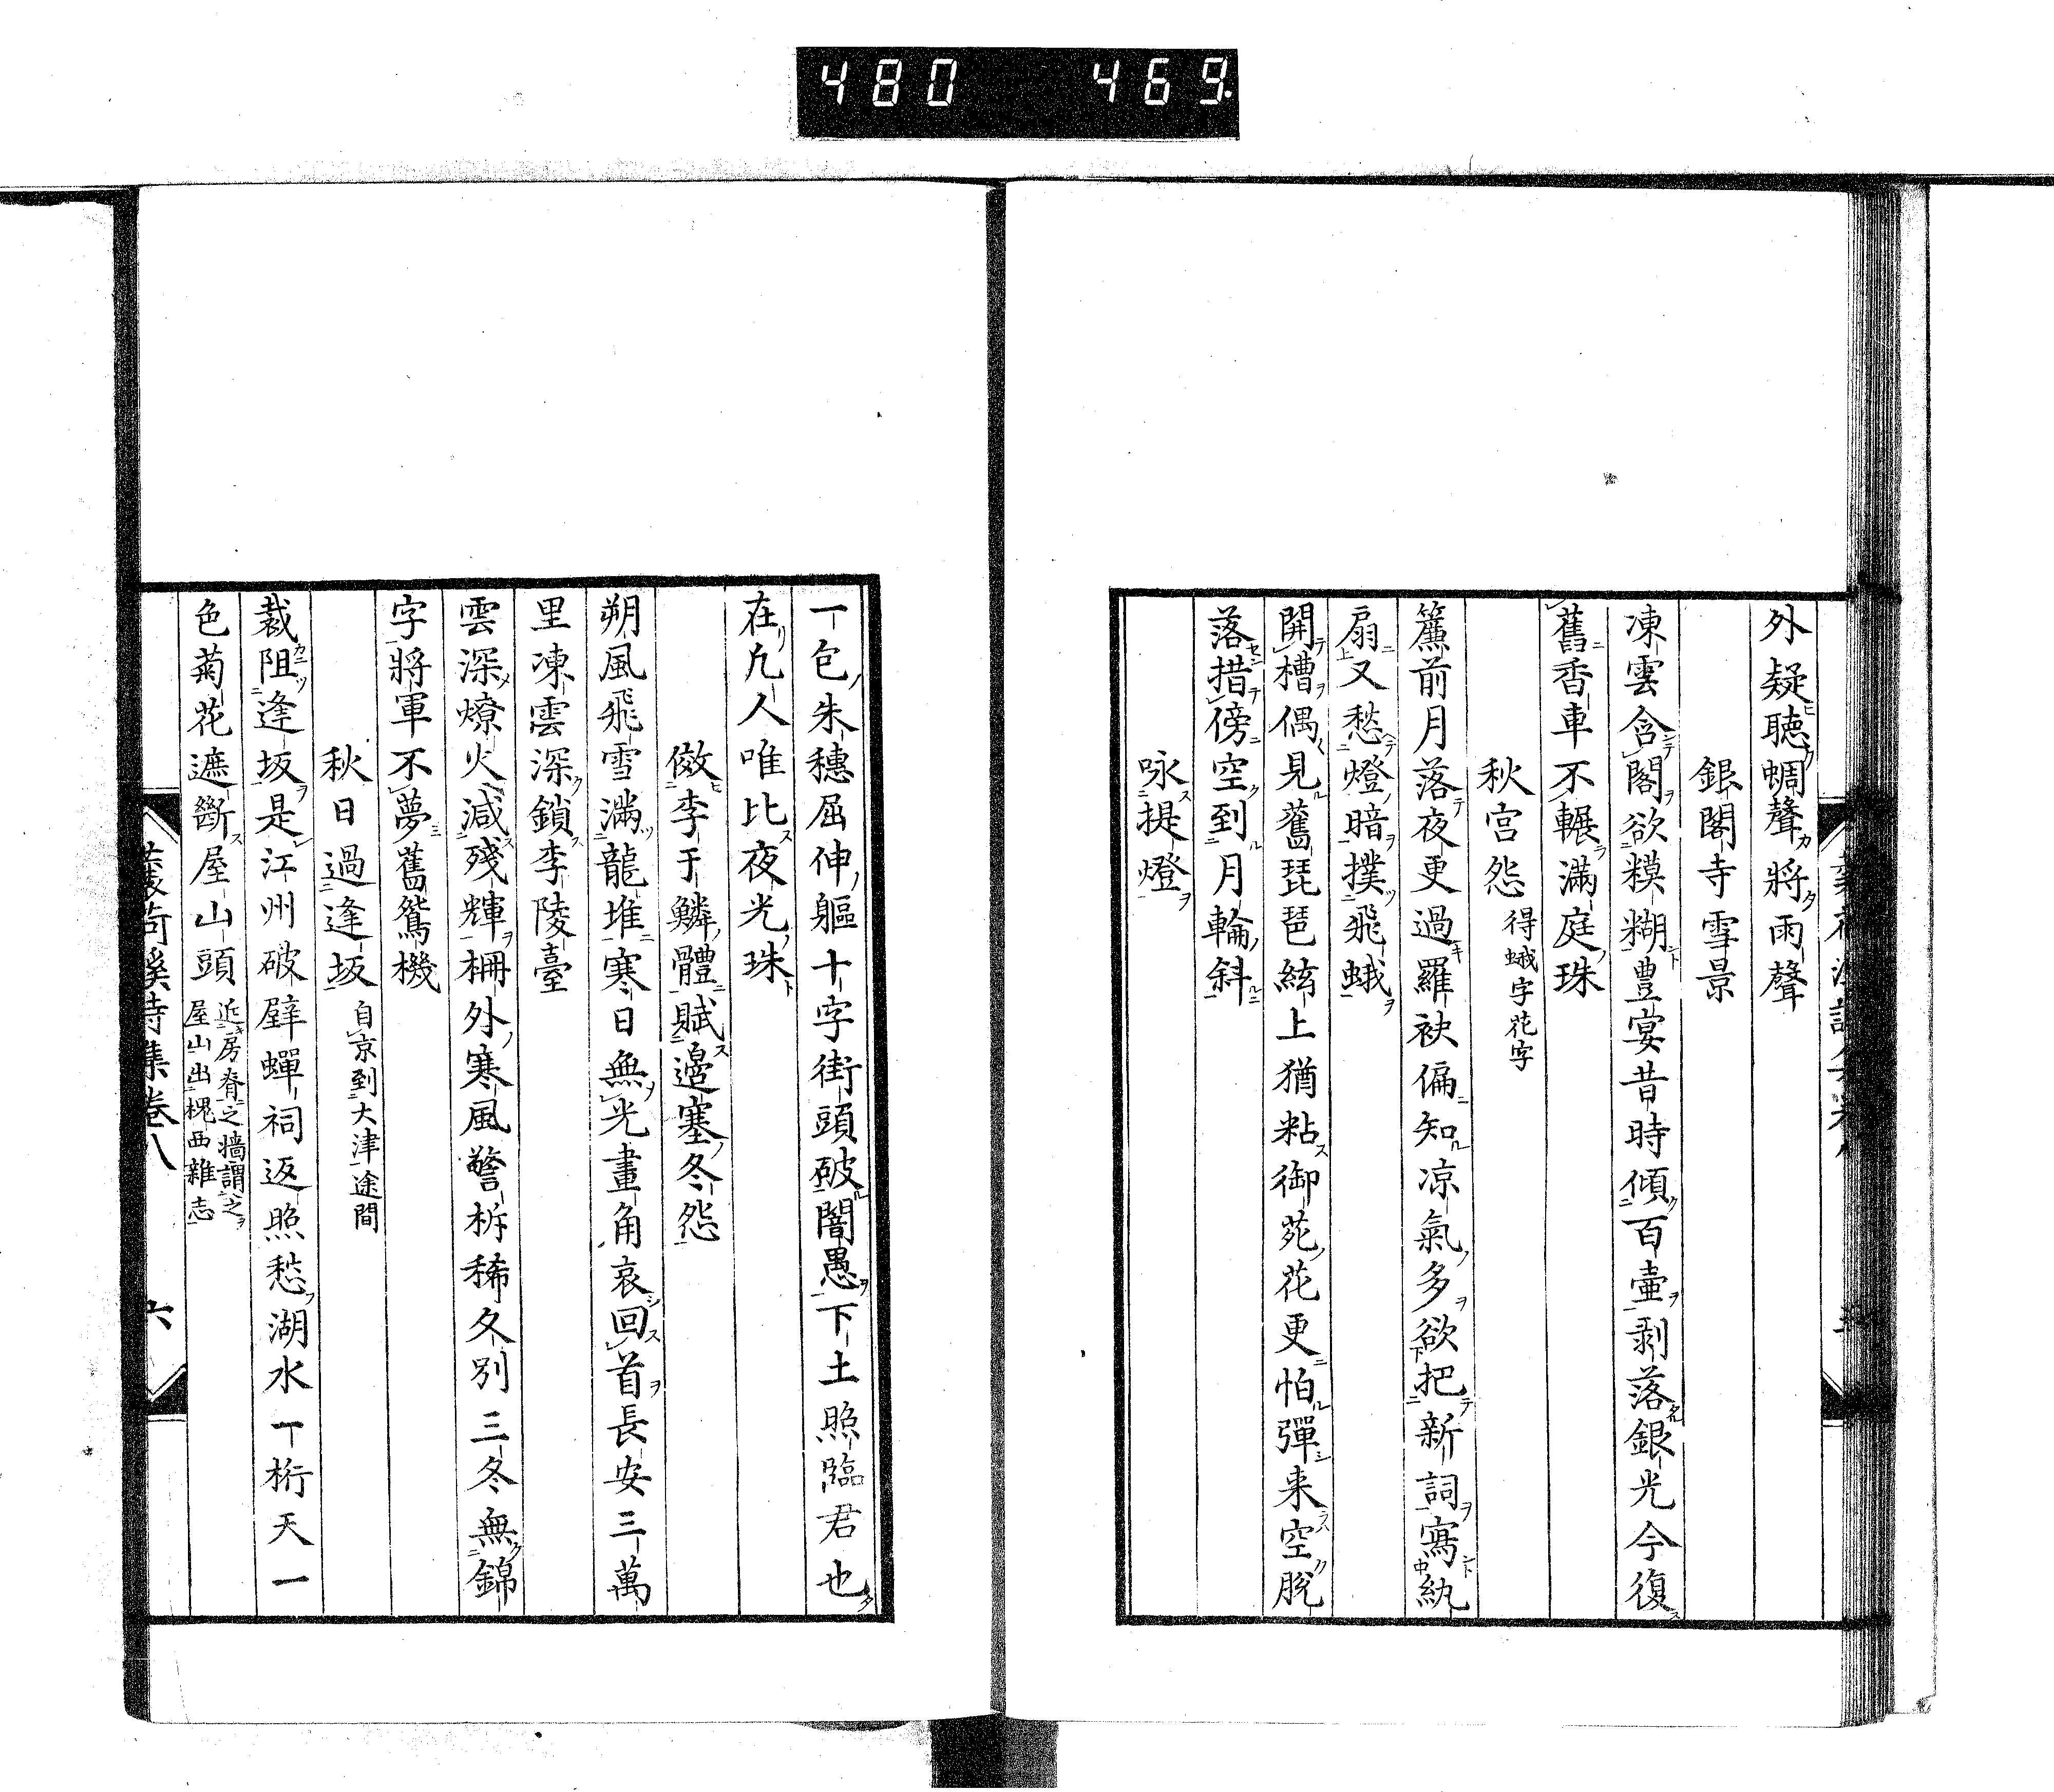 480 469.
外疑聽蜩聲將雨聲
銀閣寺雪景
凍雲含閣欲糢糊豊宴昔時傾百壷剥落銀光今復
舊香車不輾滿庭珠
秋宮怨 得蛾字花字
簾前月落夜更過羅袂偏知凉氣多欲把新詞寫紈
扇又愁燈暗撲飛蛾
開槽偶見舊琵琶絃上猶粘御苑花更怕彈来空脫
落措傍空到月輪斜
咏提燈
一包朱穗屈伸軀十字街頭破闇愚下土照臨君也
在凡人唯比夜光珠
傚李于鱗體賦邊塞冬怨
朔風飛雪滿龍堆寒日無光畫角哀回首長安三萬
里凍雲深鎖李陵臺
雲深燎火減殘輝柵外寒風警柝稀久別三冬無錦
字將軍不夢舊鴛機
秋日過逢坂 自京到大津途間
裁阻逢坂是江州破壁蟬祠返照愁湖水一桁天一
色菊花遮斷屋山頭 近房脊之墻謂之屋山出槐西雜志
詩集卷八 六